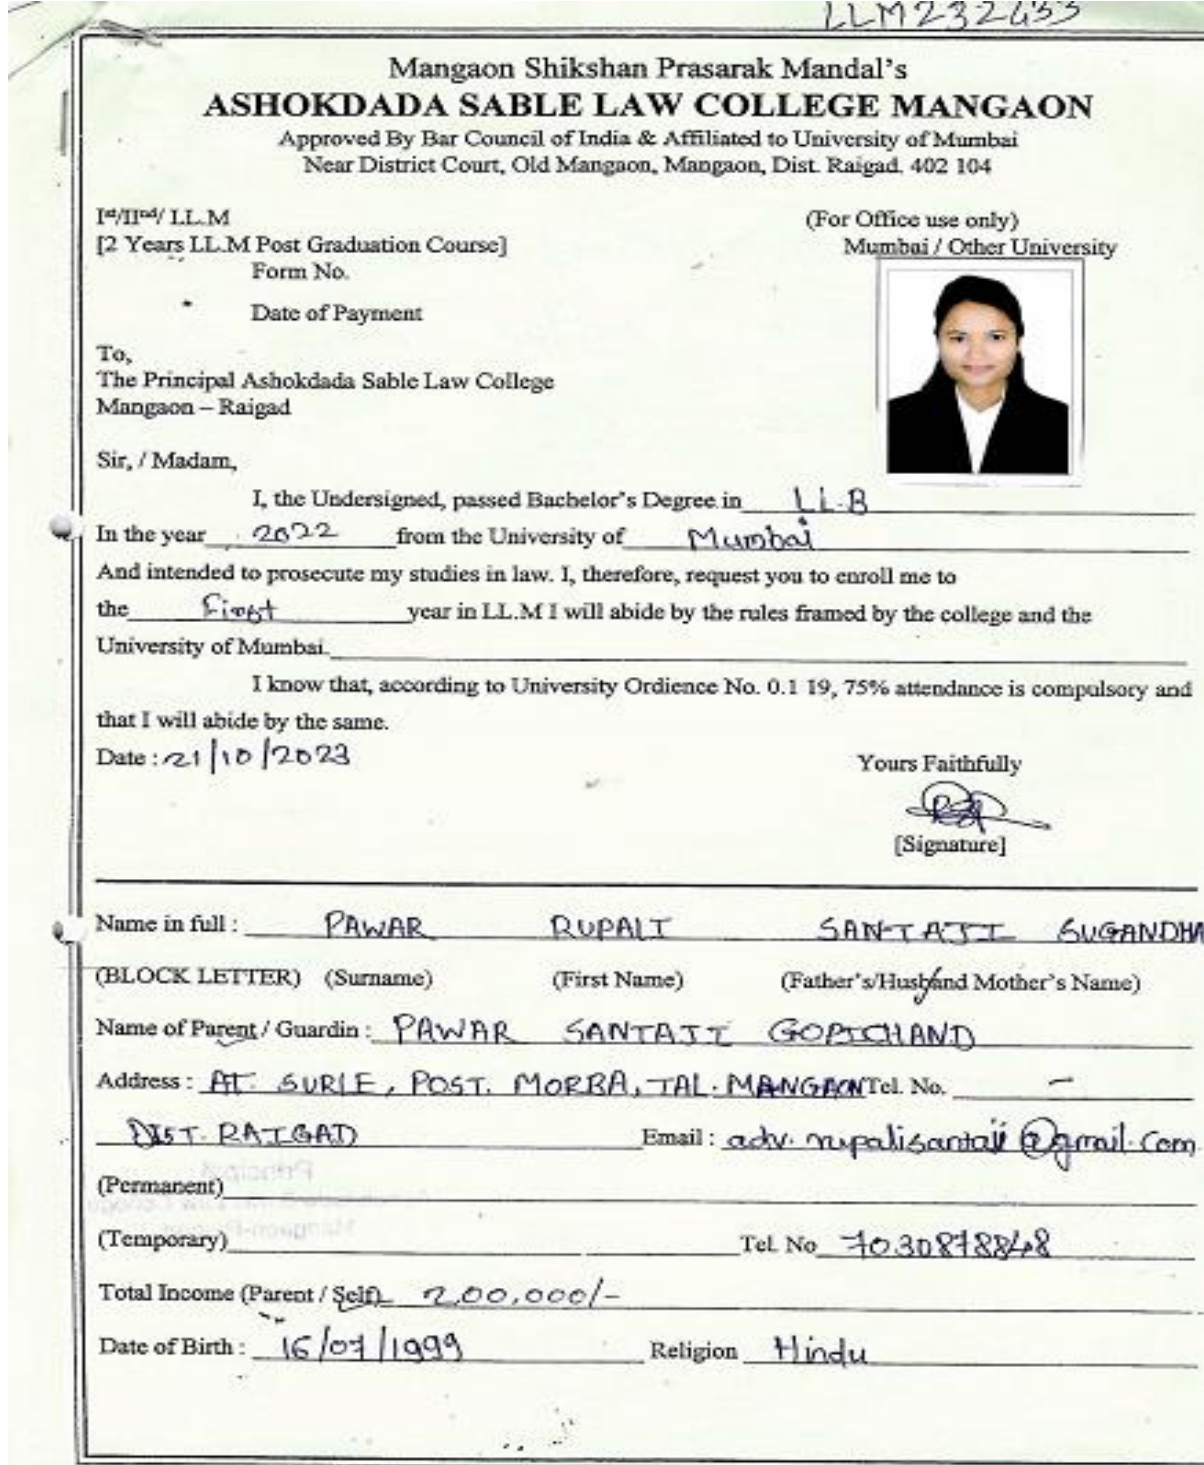 LLM232433
Mangaon Shikshan Prasarak Mandal's
ASHOKDADA SABLE LAW COLLEGE MANGAON
Approved By Bar Council of India & Affiliated to University of Mumbai
Near District Court, Old Mangaon, Mangaon, Dist. Raigad. 402 104
Ist/IInd/ LL.M (For Office use only)
[2 Years LL.M Post Graduation Course] Mumbai / Other University
Form No.
Date of Payment
To,
The Principal Ashokdada Sable Law College
Mangaon – Raigad
Sir, / Madam,
I, the Undersigned, passed Bachelor's Degree in LL.B
In the year 2022 from the University of Mumbai
And intended to prosecute my studies in law. I, therefore, request you to enroll me to
the First year in LL.M I will abide by the rules framed by the college and the
University of Mumbai.
I know that, according to University Ordience No. 0.1 19, 75% attendance is compulsory and
that I will abide by the same.
Date : 21/10/2023
Yours Faithfully
[Signature]
Name in full : PAWAR RUPALI SANTAJI SUGANDHA
(BLOCK LETTER) (Surname) (First Name) (Father's/Husband Mother's Name)
Name of Parent / Guardin : PAWAR SANTAJI GOPICHAND
Address : AT. SURLE, POST. MORBA, TAL. MANGAON Tel. No. –
DIST. RAIGAD Email : adv.rupalisantaji@gmail.com
(Permanent)
Principal
(Temporary) Tel. No 7030878848
Total Income (Parent / Self) 2,00,000/-
Date of Birth : 16/07/1999 Religion Hindu